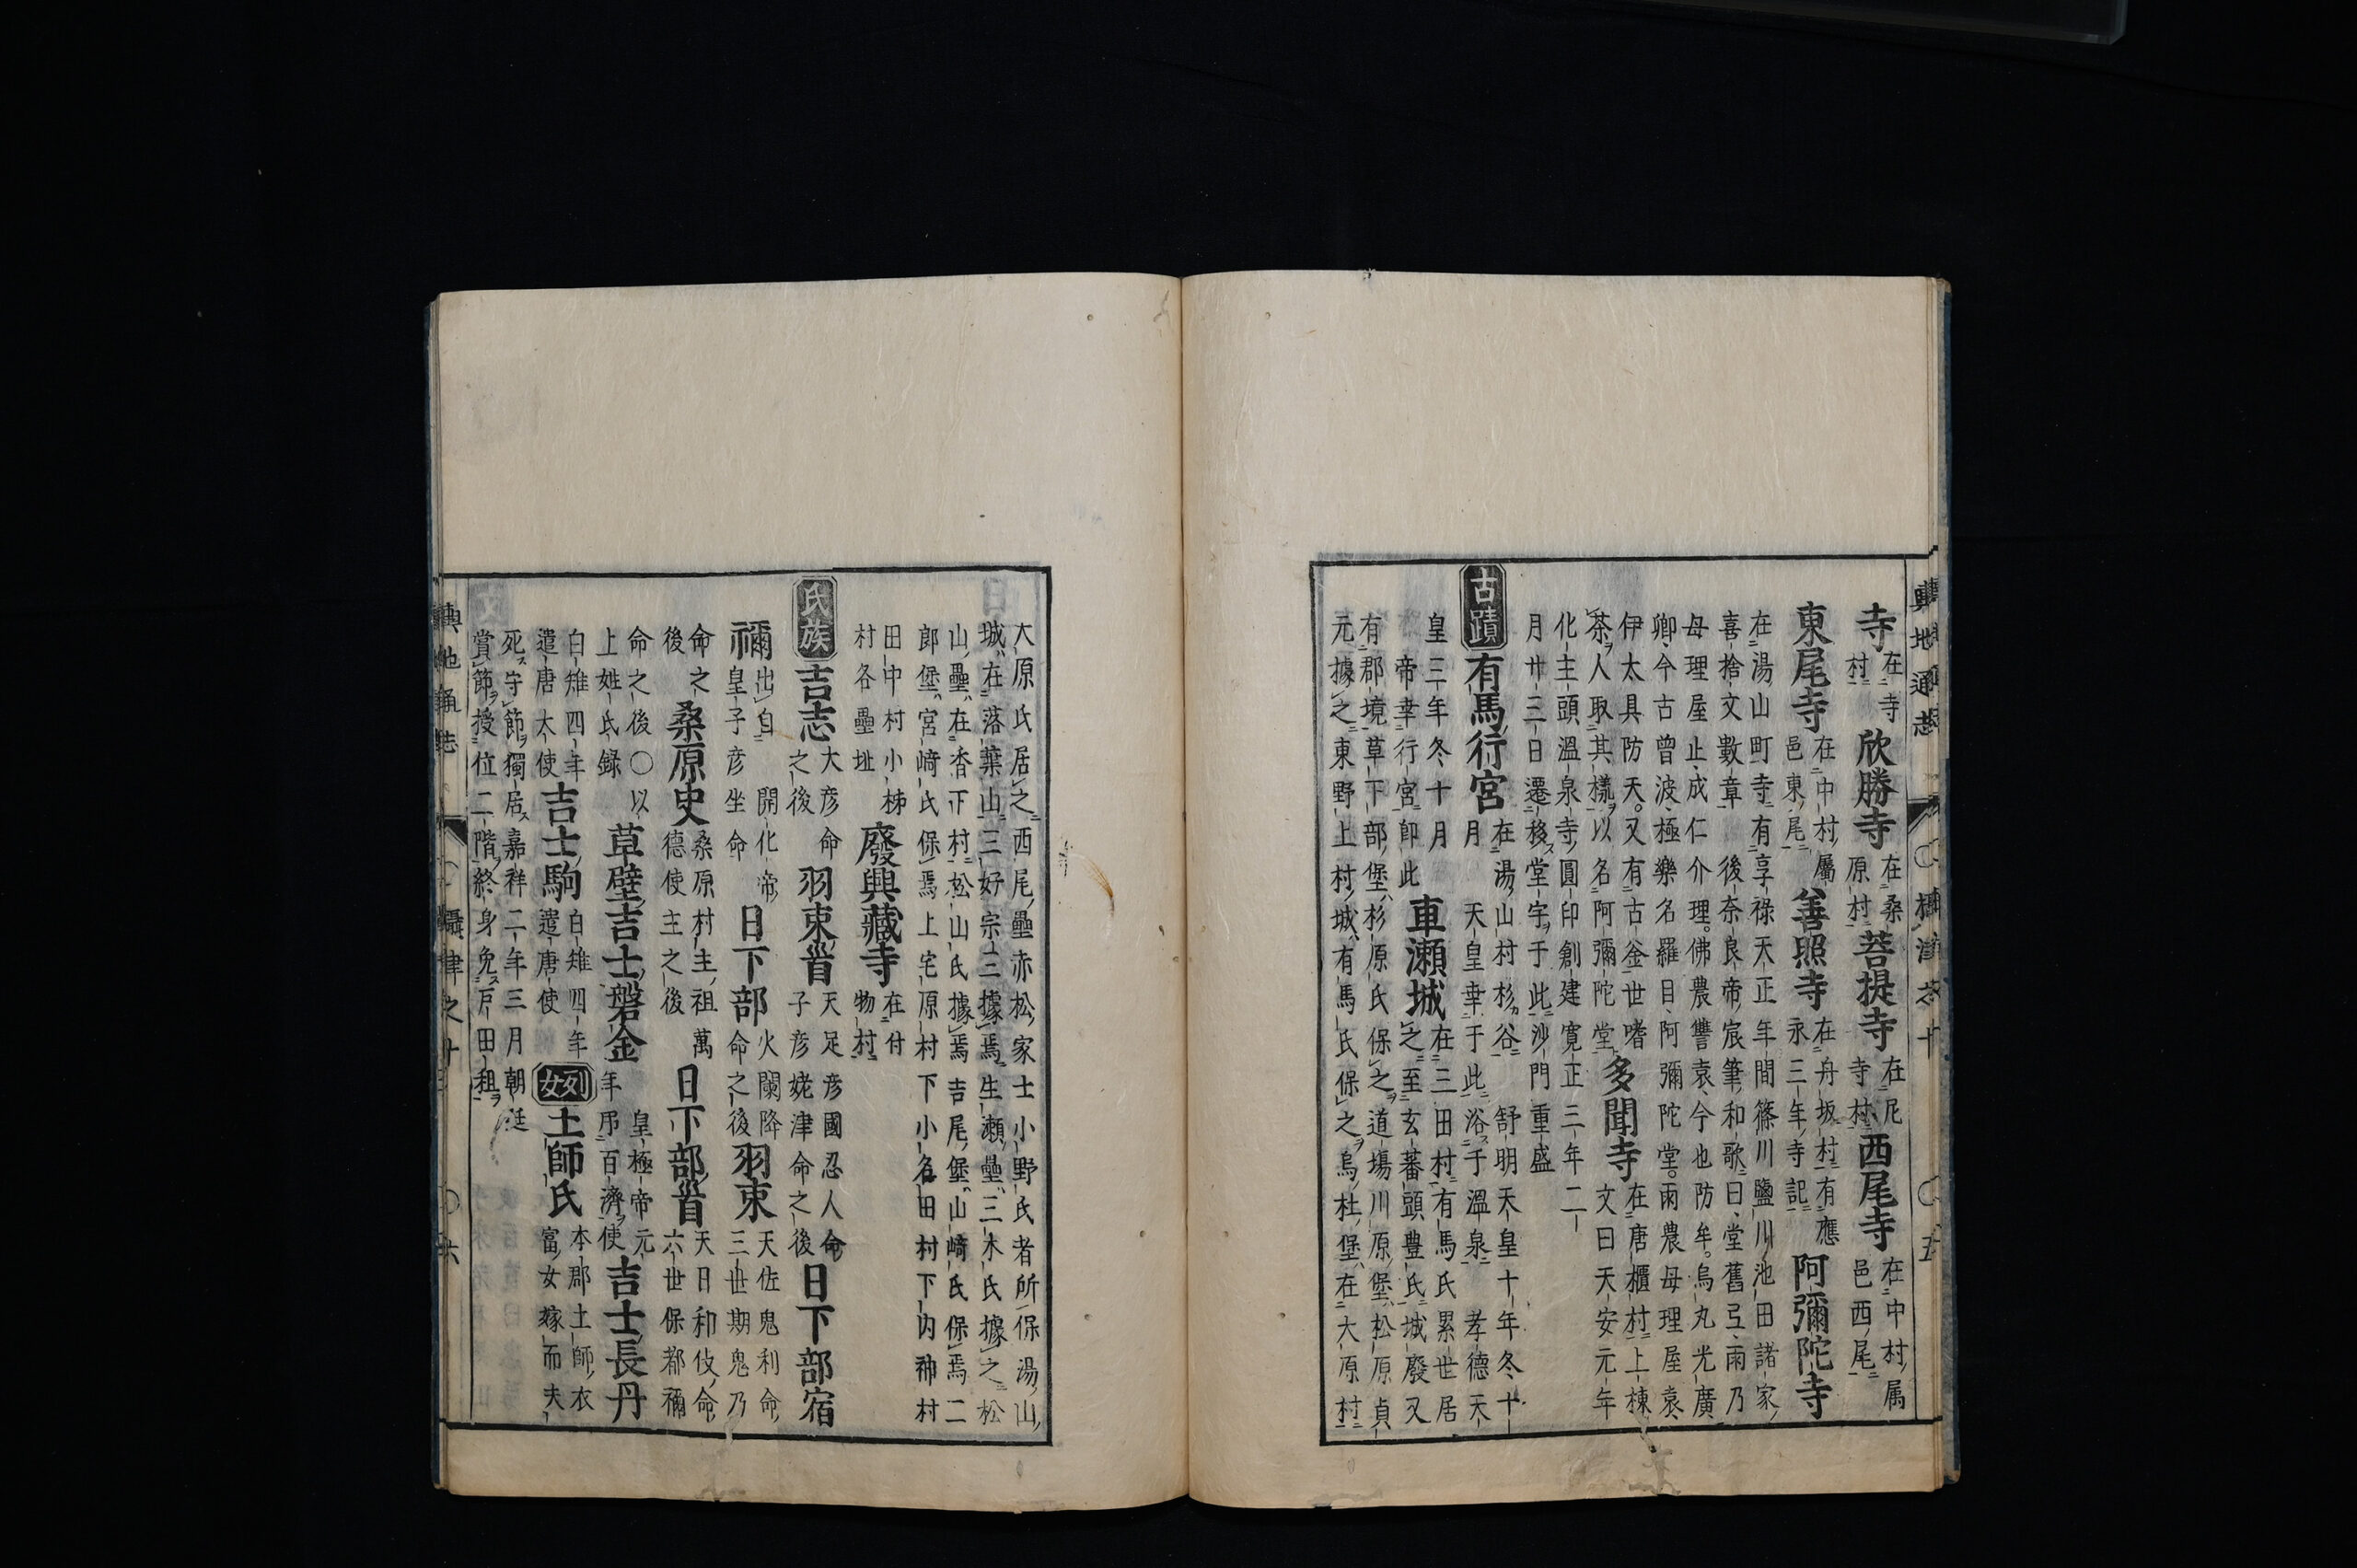 輿地通志 〇攝津志十 〇五
寺 在寺村 欣勝寺 在桑原村 菩提寺 在尼寺村 西尾寺 在中村属邑西尾
東尾寺 在中村屬邑東尾 善照寺 在舟坂村有應永三年寺記 阿彌陀寺
在湯山町寺有享祿天正年間篠川鹽川池田諸家
喜捨文數章 後奈良帝宸筆和歌曰堂舊弖雨乃
母理屋止成仁介理佛農讐袁今也防牟烏丸光廣
卿今古曾波極樂名羅目阿彌陀堂雨農母理屋袁
伊太具防天又有古釜世嗜茶人取其樣以名阿彌陀堂 多聞寺 在唐櫃村上棟文曰天安元年
化主頭溫泉寺圓印創建寛正三年二
月廿三日遷移堂宇于此沙門重盛
古蹟 有馬行宮 在湯山村杉谷 舒明天皇十年冬十月 天皇幸于此浴于溫泉 孝德天
皇三年冬十月帝幸行宮卽此 車瀨城 在三田村有馬氏累世居之至玄蕃頭豊氏城廢又
有郡境草下部堡杉原氏保之道場川原堡松原貞
元據之東野上村城有馬氏保之烏杜堡在大原村
大原氏居之西尾壘赤松家士小野氏者所保湯山
城在落葉山三好宗三據焉生瀨壘三木氏據之松
山壘在香下村松山氏據焉吉尾堡山﨑氏保焉二
郎堡宮﨑氏保焉上宅原村下小名田村下内神村
田中村小柹村各壘址 廢興藏寺 在付物村
氏族 吉志 大彦命之後 羽束首 天足彦國忍人命子彦姥津命之後 日下部宿
禰 出自 開化帝皇子彦坐命 日下部 火闌降命之後 羽束 天佐鬼利命三世期鬼乃
命之後 桑原史 桑原村主祖萬德使主之後 日下部首 天日和伎命六世保都禰
命之後〇以上姓氏録 草壁吉士磐金 皇極帝元年使百濟 吉士長丹
白雉四年遣唐大使 吉士駒 白雉四年遣唐使 列女 土師氏 本郡土師衣富女嫁而夫
死守節獨居嘉祥二年三月朝廷
賞節授位二階終身免戸田租